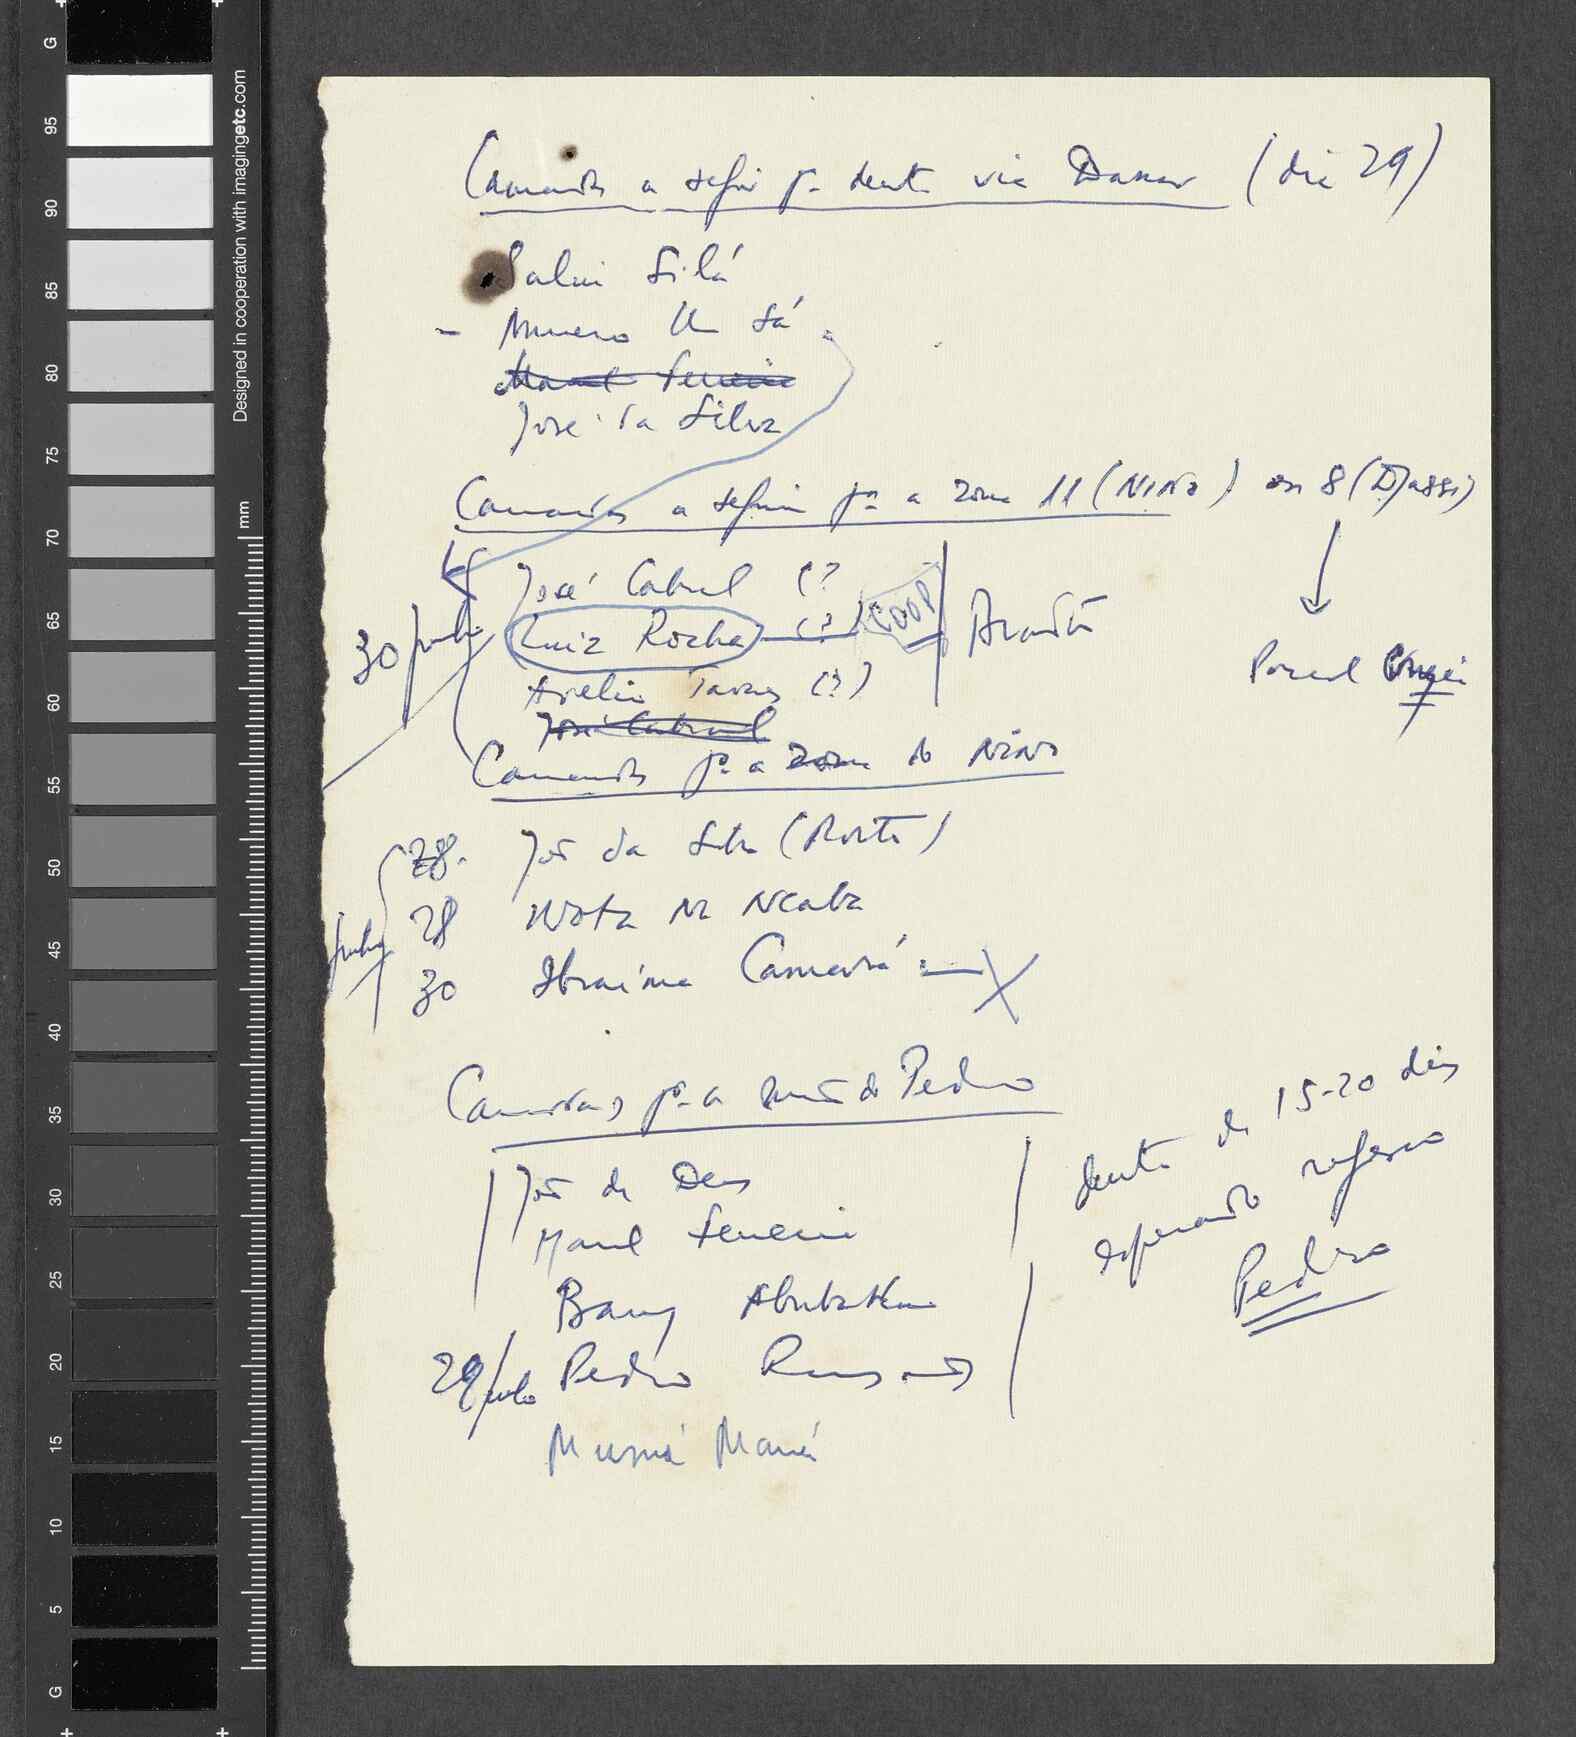 Camaradas a seguir pª dentro via Dakar (dia 29)
Salui Silá
- Um Sá
Manuel Ferreira
José da Silva
Camaradas a seguir pª a zona 11 (NINO) ou 8 (Djassi)
José Cabral (?
30/julho Luiz Rocha (?) COOP
Tavares (?)
José Cabral
Camaradas pª a zona do NINO
julho
28. João da Silva (Porto)
28 Wota Na Ncaba
30 Ibraima Camará
Camaradas pª a zona do Pedro
João de Deus
Manuel Ferreira
Barry Abubakar
29/julho Pedro Ramos
Mané
dentro de 15-20 dias
esperando regresso
Pedro
Designed in cooperation with imagingetc.com
mm
G
95
90
85
80
75
70
65
60
55
50
45
40
35
30
25
20
15
10
5
G